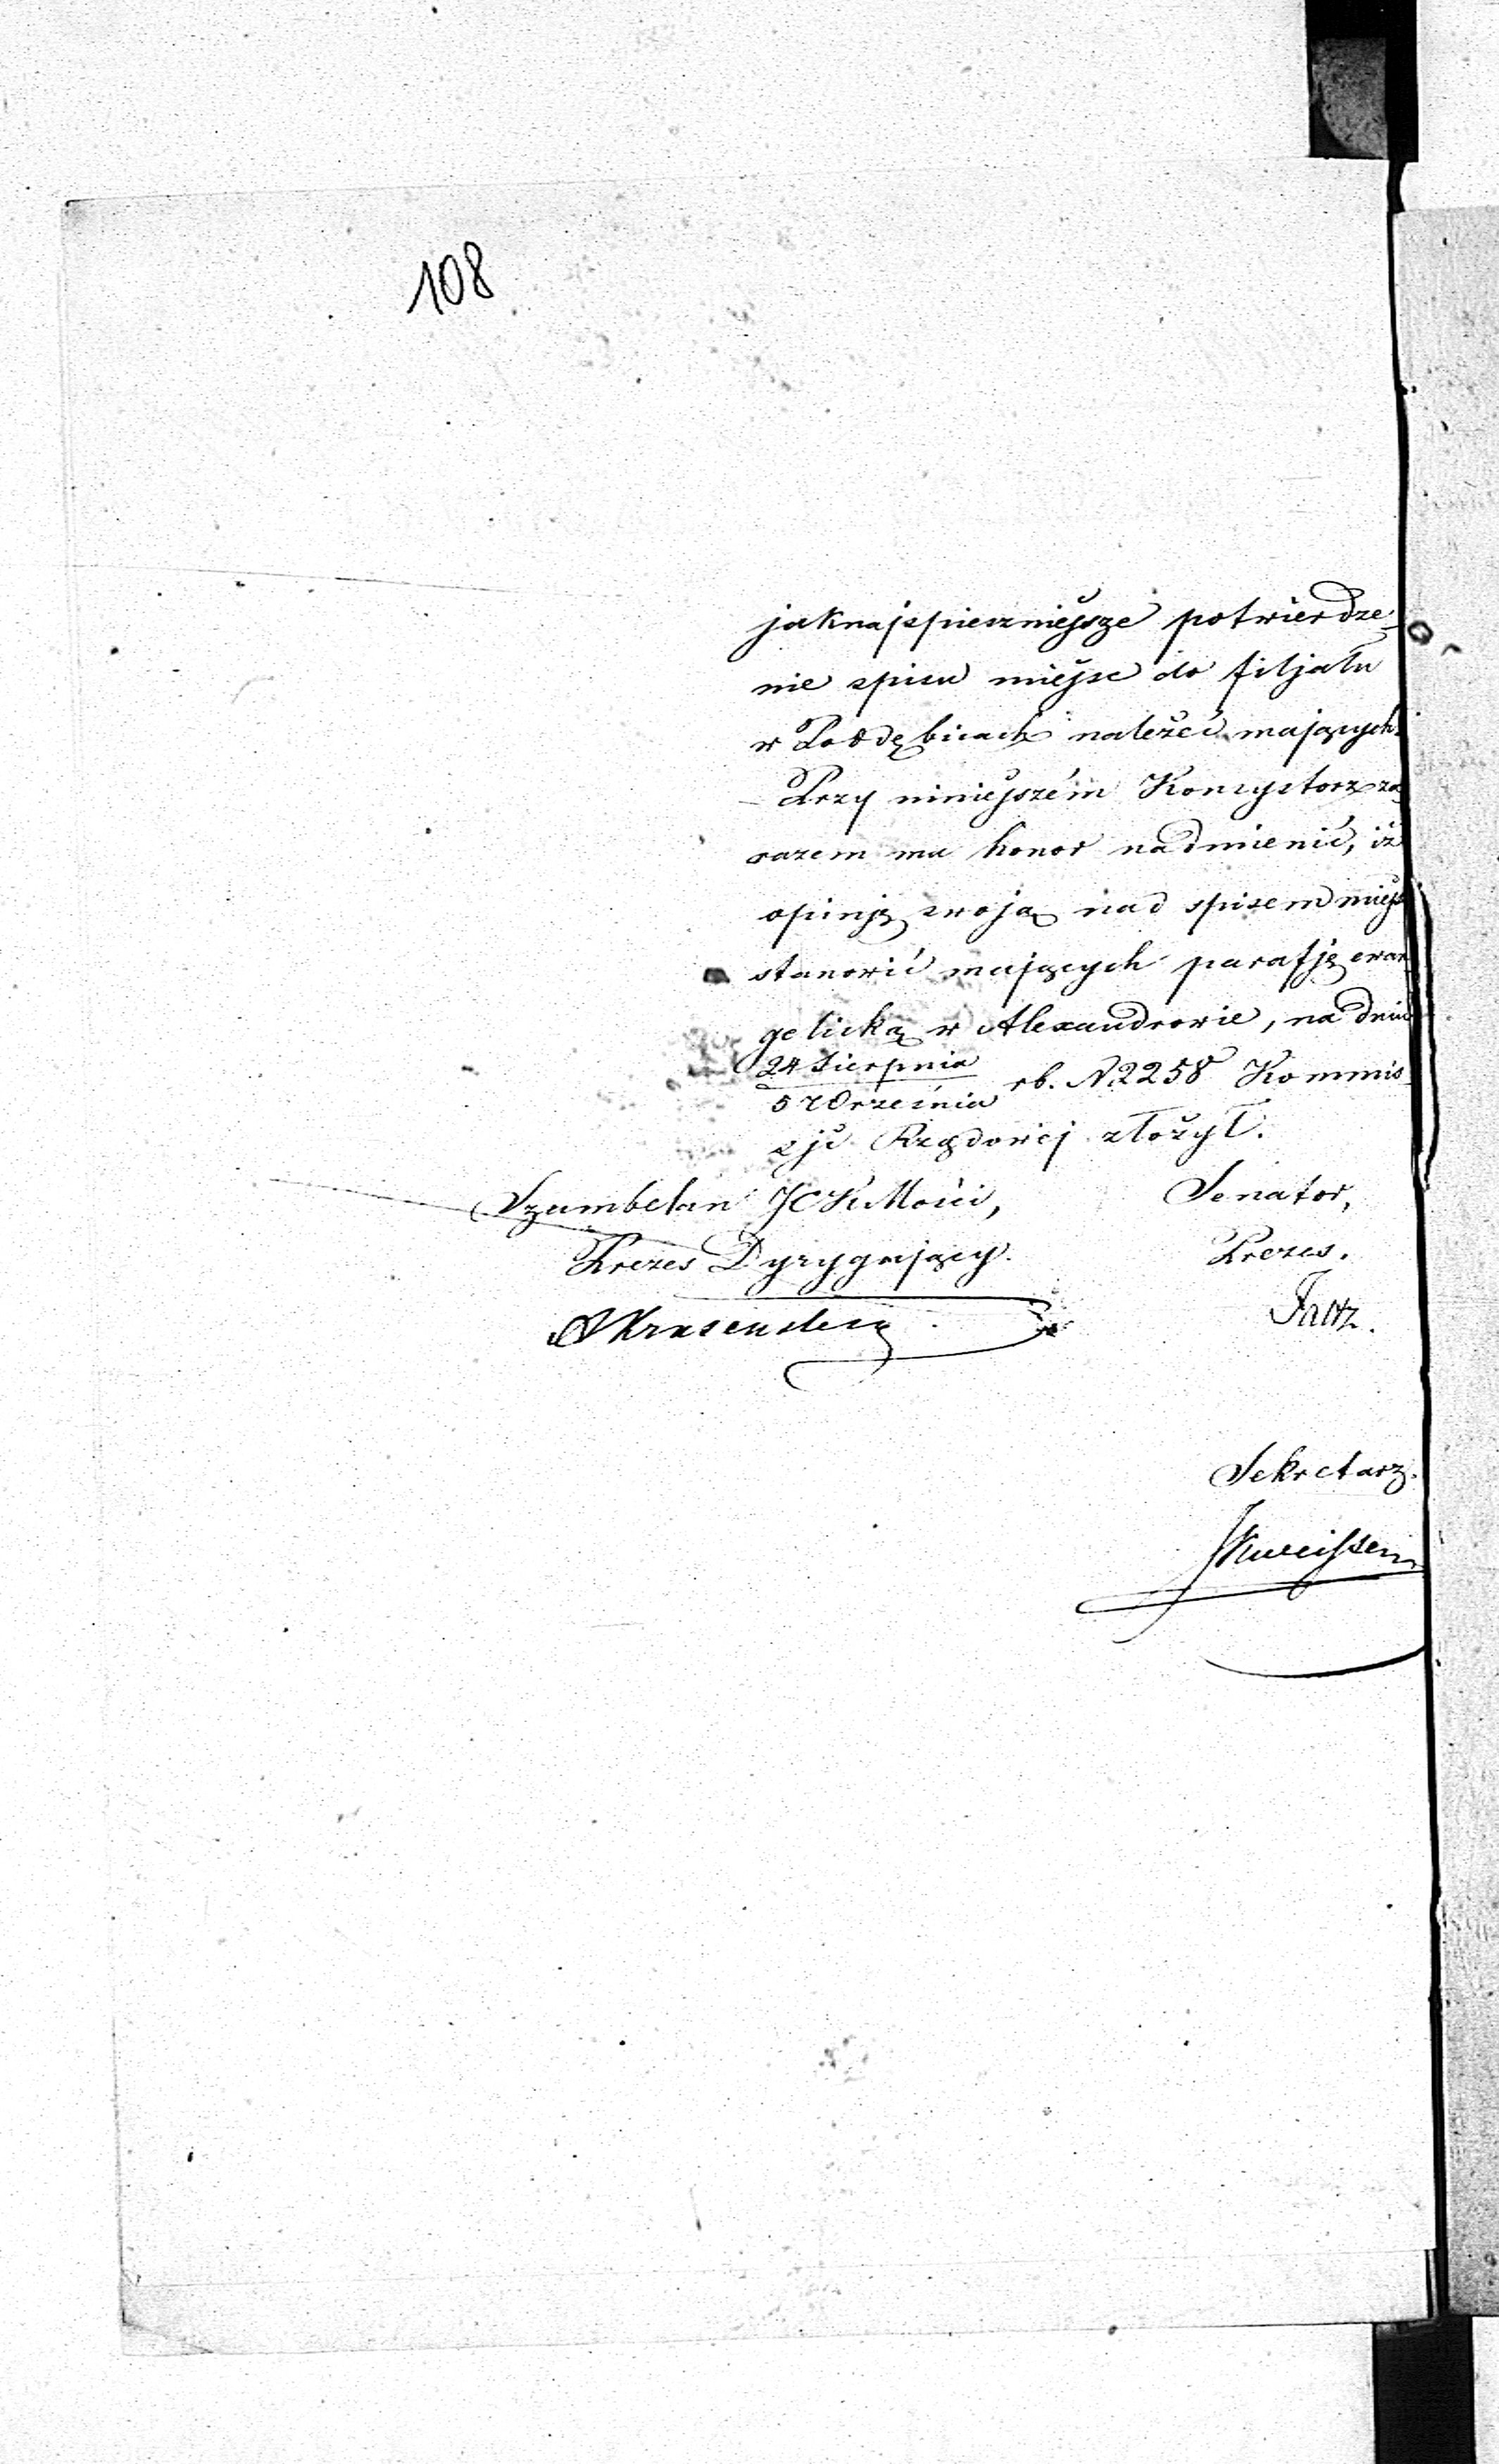 108
jaknajspieszniejsze potwierdze-
nie spisu miejsc do filjału
w Poddębicach należeć mających.
Przy niniejszém Konsystorz za
razem ma honor nadmienić, iż
opinję swoją nad spisem miejsc
stanowić mających parafję ewan
gelicką w Alexandrowie, na dniu
24 Sierpnia
5 Września rb. N. 2258 Kommis
sji Rządowej złożył.
Szambelan JCK Mości, Senator,
Prezes Dyrygujący. Prezes.
Sekretarz.